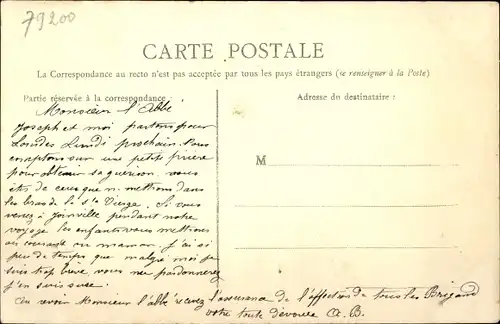 79200
CARTE POSTALE
La Correspondance au recto n'est pas acceptée par tous les pays étrangers (se renseigner à la Poste)
Partie réservée à la correspondance
Adresse du destinataire :
M
Monsieur l'Abbé
Joseph et moi partons pour
Lourdes Lundi prochain. Nous
comptons sur une petite prière
pour obtenir sa guerison. vous
êtes de ceux que n. mettrons dans
les bras de la Ste Vierge. Si vous
venez à Joinville pendant notre
voyage les enfants vous mettront
au courant ou maman. J'ai si
peu de temps que malgré moi je
suis trop brève, vous me pardonnerez
j'en suis sure.
au revoir Monsieur l'abbé recevez l'assurance de l'affection de tous les Brigand
votre toute dévouée A. B.